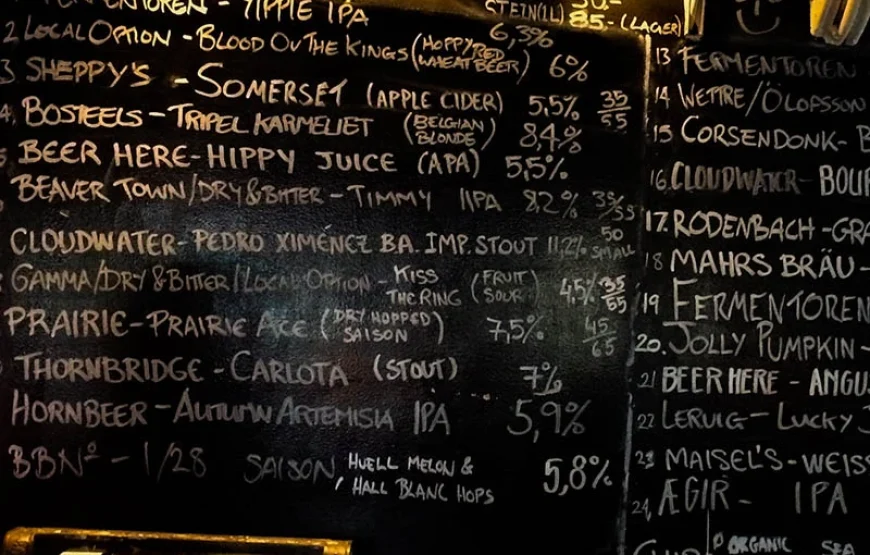 - YIPPIE IPA
STEIN(1L) 85.- (LAGER)
6,3%
2 LOCAL OPTION - BLOOD OV THE KINGS (HOPPY RED WHEAT BEER) 6%
3 SHEPPY'S - SOMERSET (APPLE CIDER) 5,5% 35/55
4. BOSTEELS - TRIPEL KARMELIET (BELGIAN BLONDE) 8,4%
BEER HERE - HIPPY JUICE (APA) 5,5%
BEAVER TOWN/DRY & BITTER - TIMMY IIPA 8,2% 35/55
CLOUDWATER - PEDRO XIMÉNEZ B.A. IMP. STOUT 11,2% 50 SMALL
GAMMA/DRY & BITTER/LOCAL OPTION - KISS THE RING (FRUIT SOUR) 4,5% 35/55
PRAIRIE - PRAIRIE ACE (DRY HOPPED SAISON) 7,5% 45/65
THORNBRIDGE - CARLOTA (STOUT) 7%
HORNBEER - AUTUMN ARTEMISIA IPA 5,9%
BBNº - 1/28 SAISON HUELL MELON & HALL BLANC HOPS 5,8%
13 FERMENTOREN
14 WETTRE/ÖLOFSSON
15 CORSENDONK - B
16. CLOUDWATER - BOUR
17. RODENBACH - GRA
18 MAHRS BRÄU -
19 FERMENTOREN
20. JOLLY PUMPKIN -
21 BEER HERE - ANGU
22 LERVIG - LUCKY J
23 MAISEL'S - WEISS
24, ÆGIR - IPA
ORGANIC